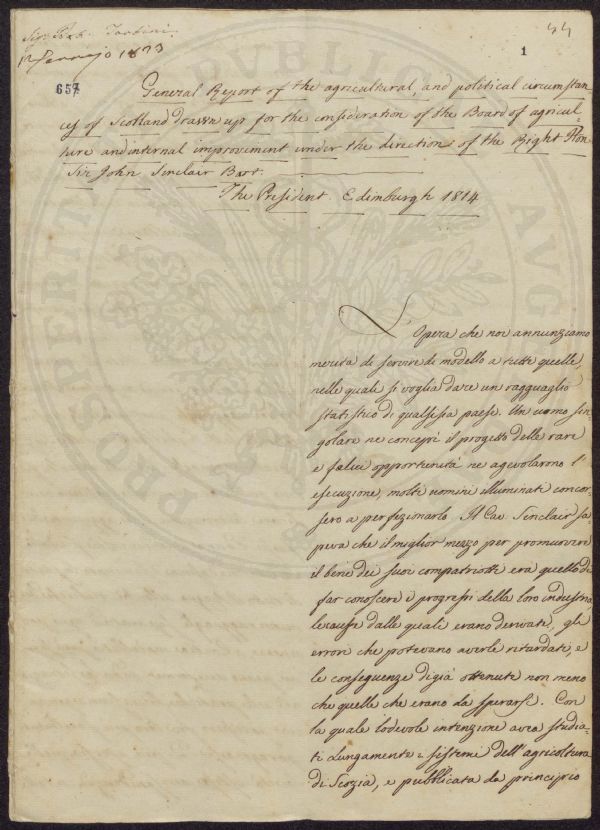 44
Sig. Bab. Tartini
12 Gennajo 1823
1
657
General Report of the agricultural, and political circumstan-
ces of Scotland drawn up for the consideration of the Board of agricul-
ture and internal improvement under the direction of the Right Hon
Sir John Sinclair Bart.
The President. Edimburgh 1814
L'Opera che noi annunziamo
merita di servire di modello a tutte quelle,
nelle quali si voglia dare un ragguaglio
statistico di qualsisia paese. Un uomo sin-
golare ne concepì il progetto delle rare
e felici opportunità ne agevolarono l'
esecuzione, molti uomini illuminati concor-
sero a perfezionarlo. Il Cav. Sinclair sa-
peva che il miglior mezzo per promuovere
il bene dei suoi compatriotti era quello di
far conoscere i progressi della loro industria
le cause dalle quali erano derivati, gli
errori che potevano averli ritardati, e
le conseguenze digià ottenute non meno
che quelle che erano da sperarsi. Con
la quale lodevole intenzione avea studia-
ti lungamente i sistemi dell'agricoltura
di Scozia, e pubblicata da principio
PROSPERITATI
PVBLICAE
AVG